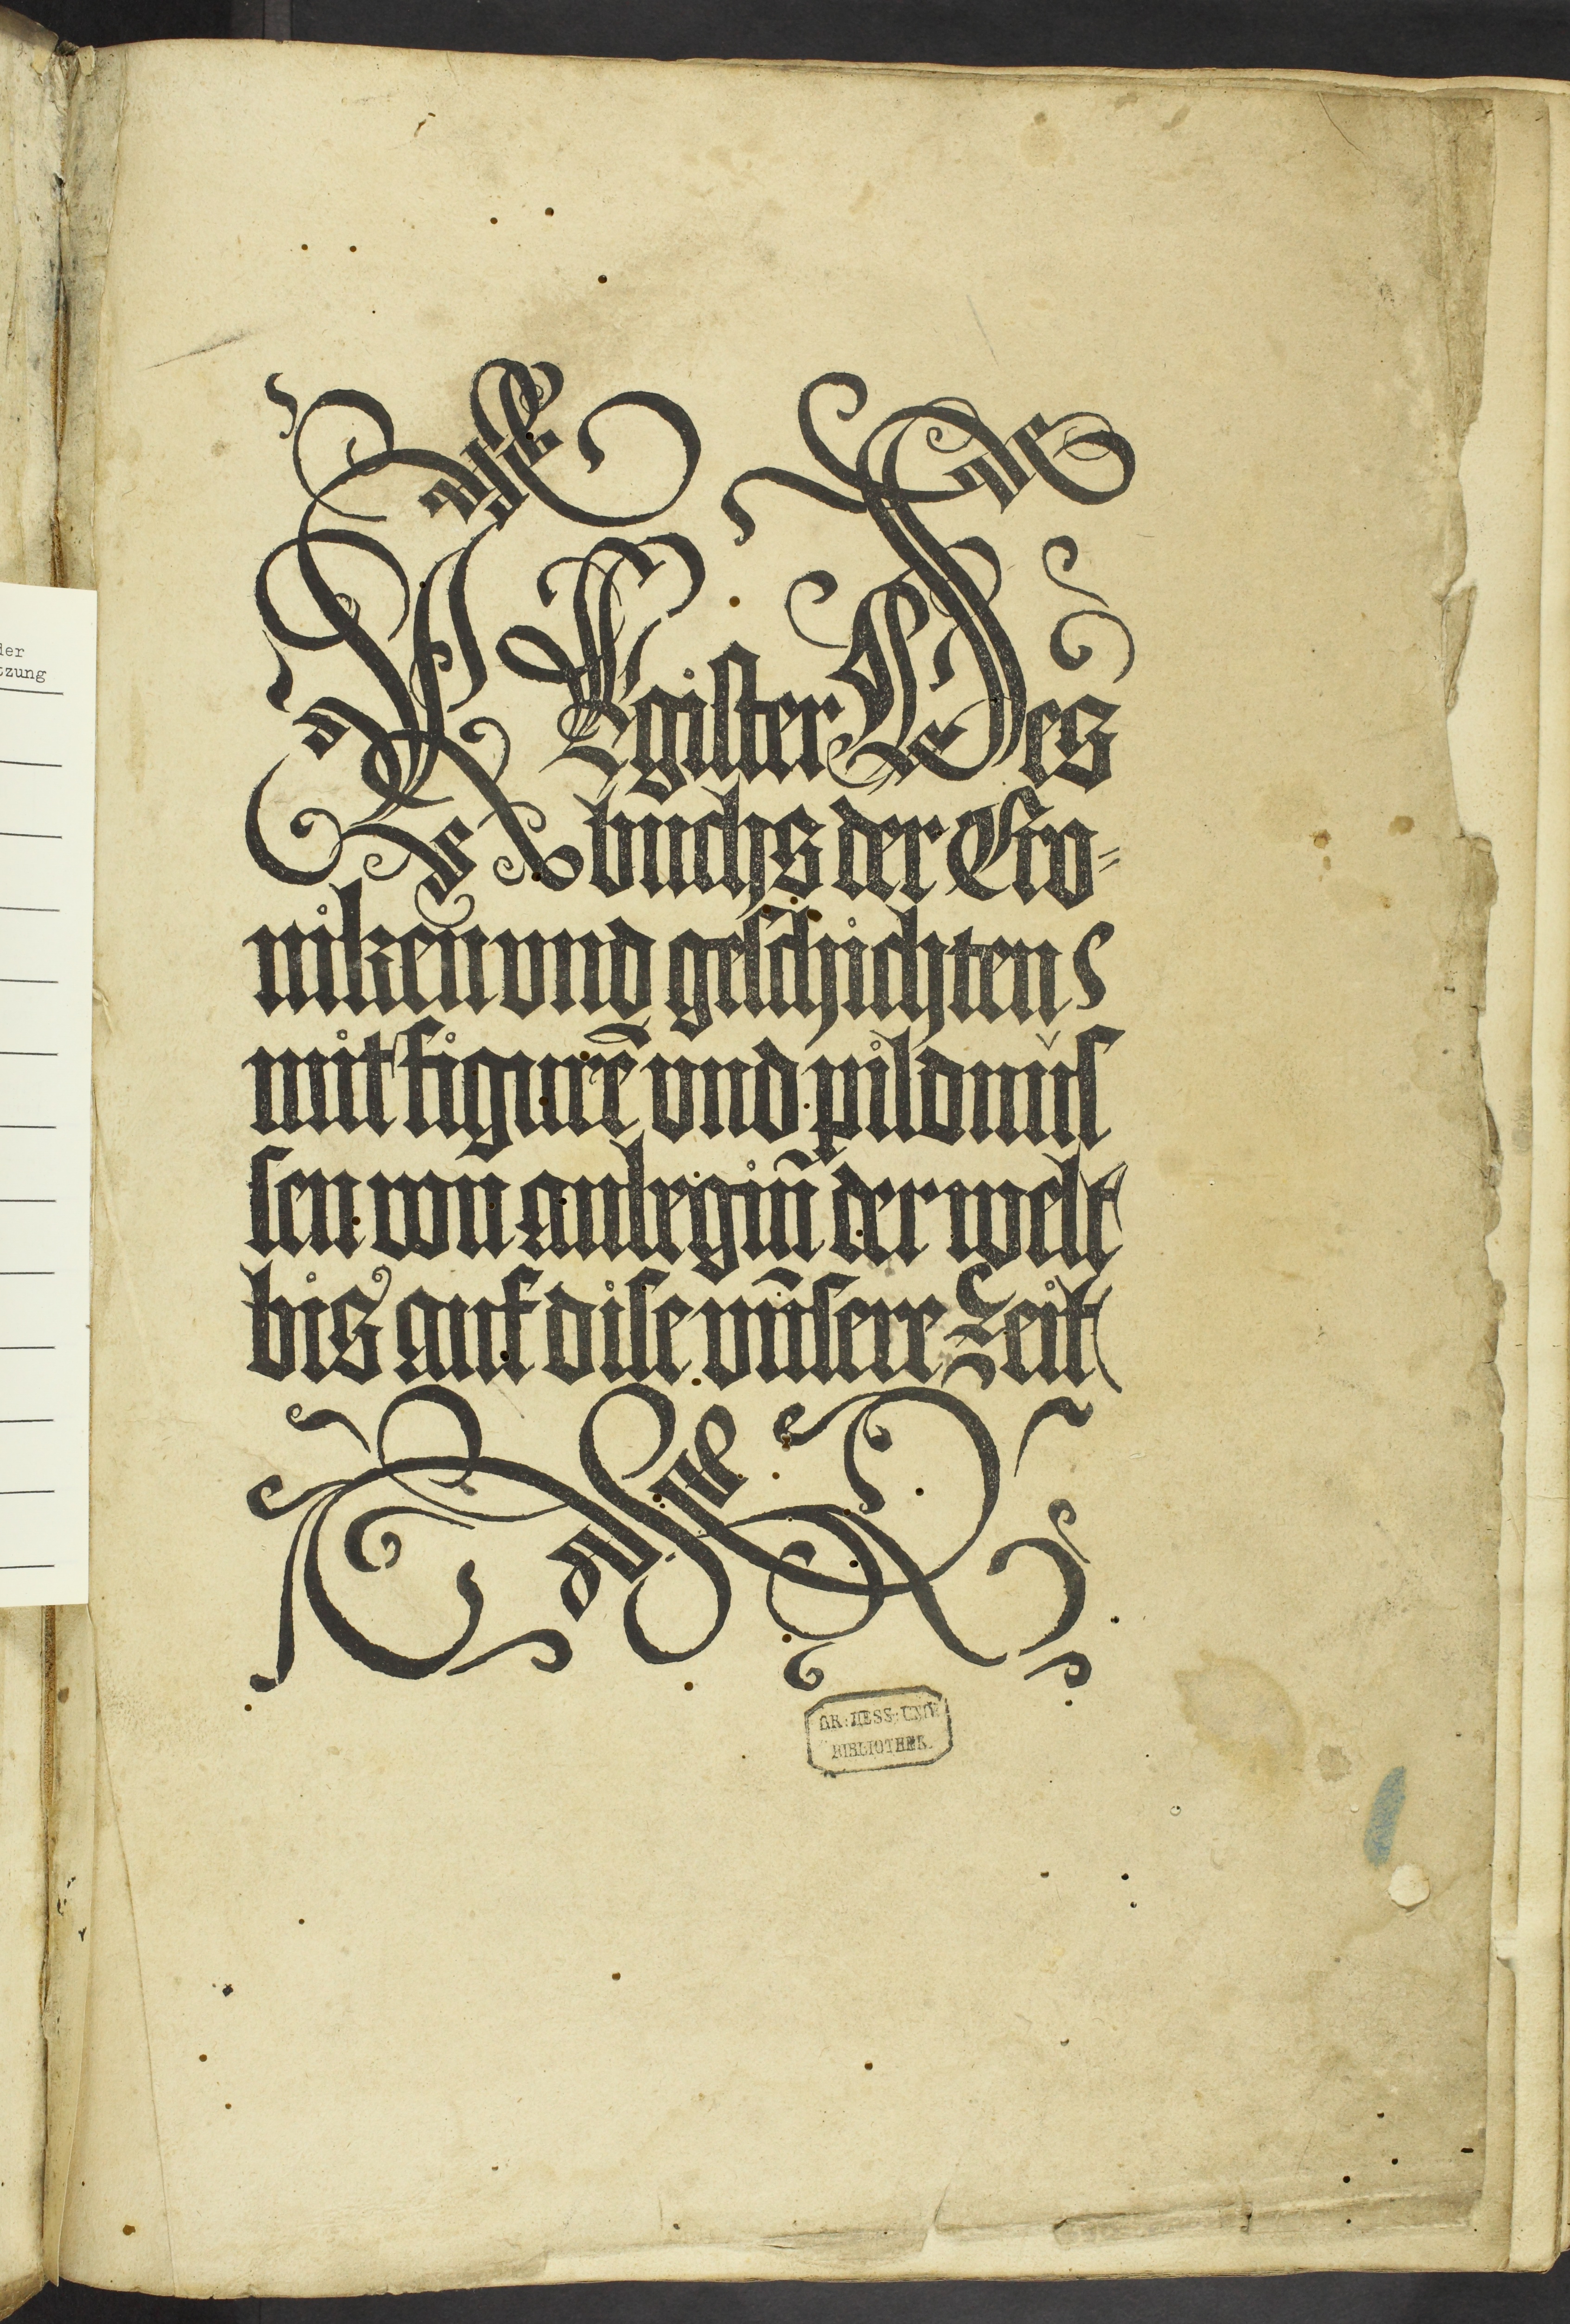 REgister Des
buchs der Cro=
niken und geschichten
mit figurẽ und pildnus
sen von anbegiñ der welt
bis auf dise unsere Zeit
GR: HESS: UNIV
BIBLIOTHEK.
der
tzung